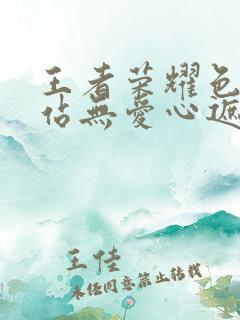 王者荣耀色
佔無愛心遮
王佳
未经同意禁止转载